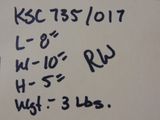 KSC 735/017
L- 8"
W- 10"
H- 5"
RW
Wgt. - 3 Lbs.